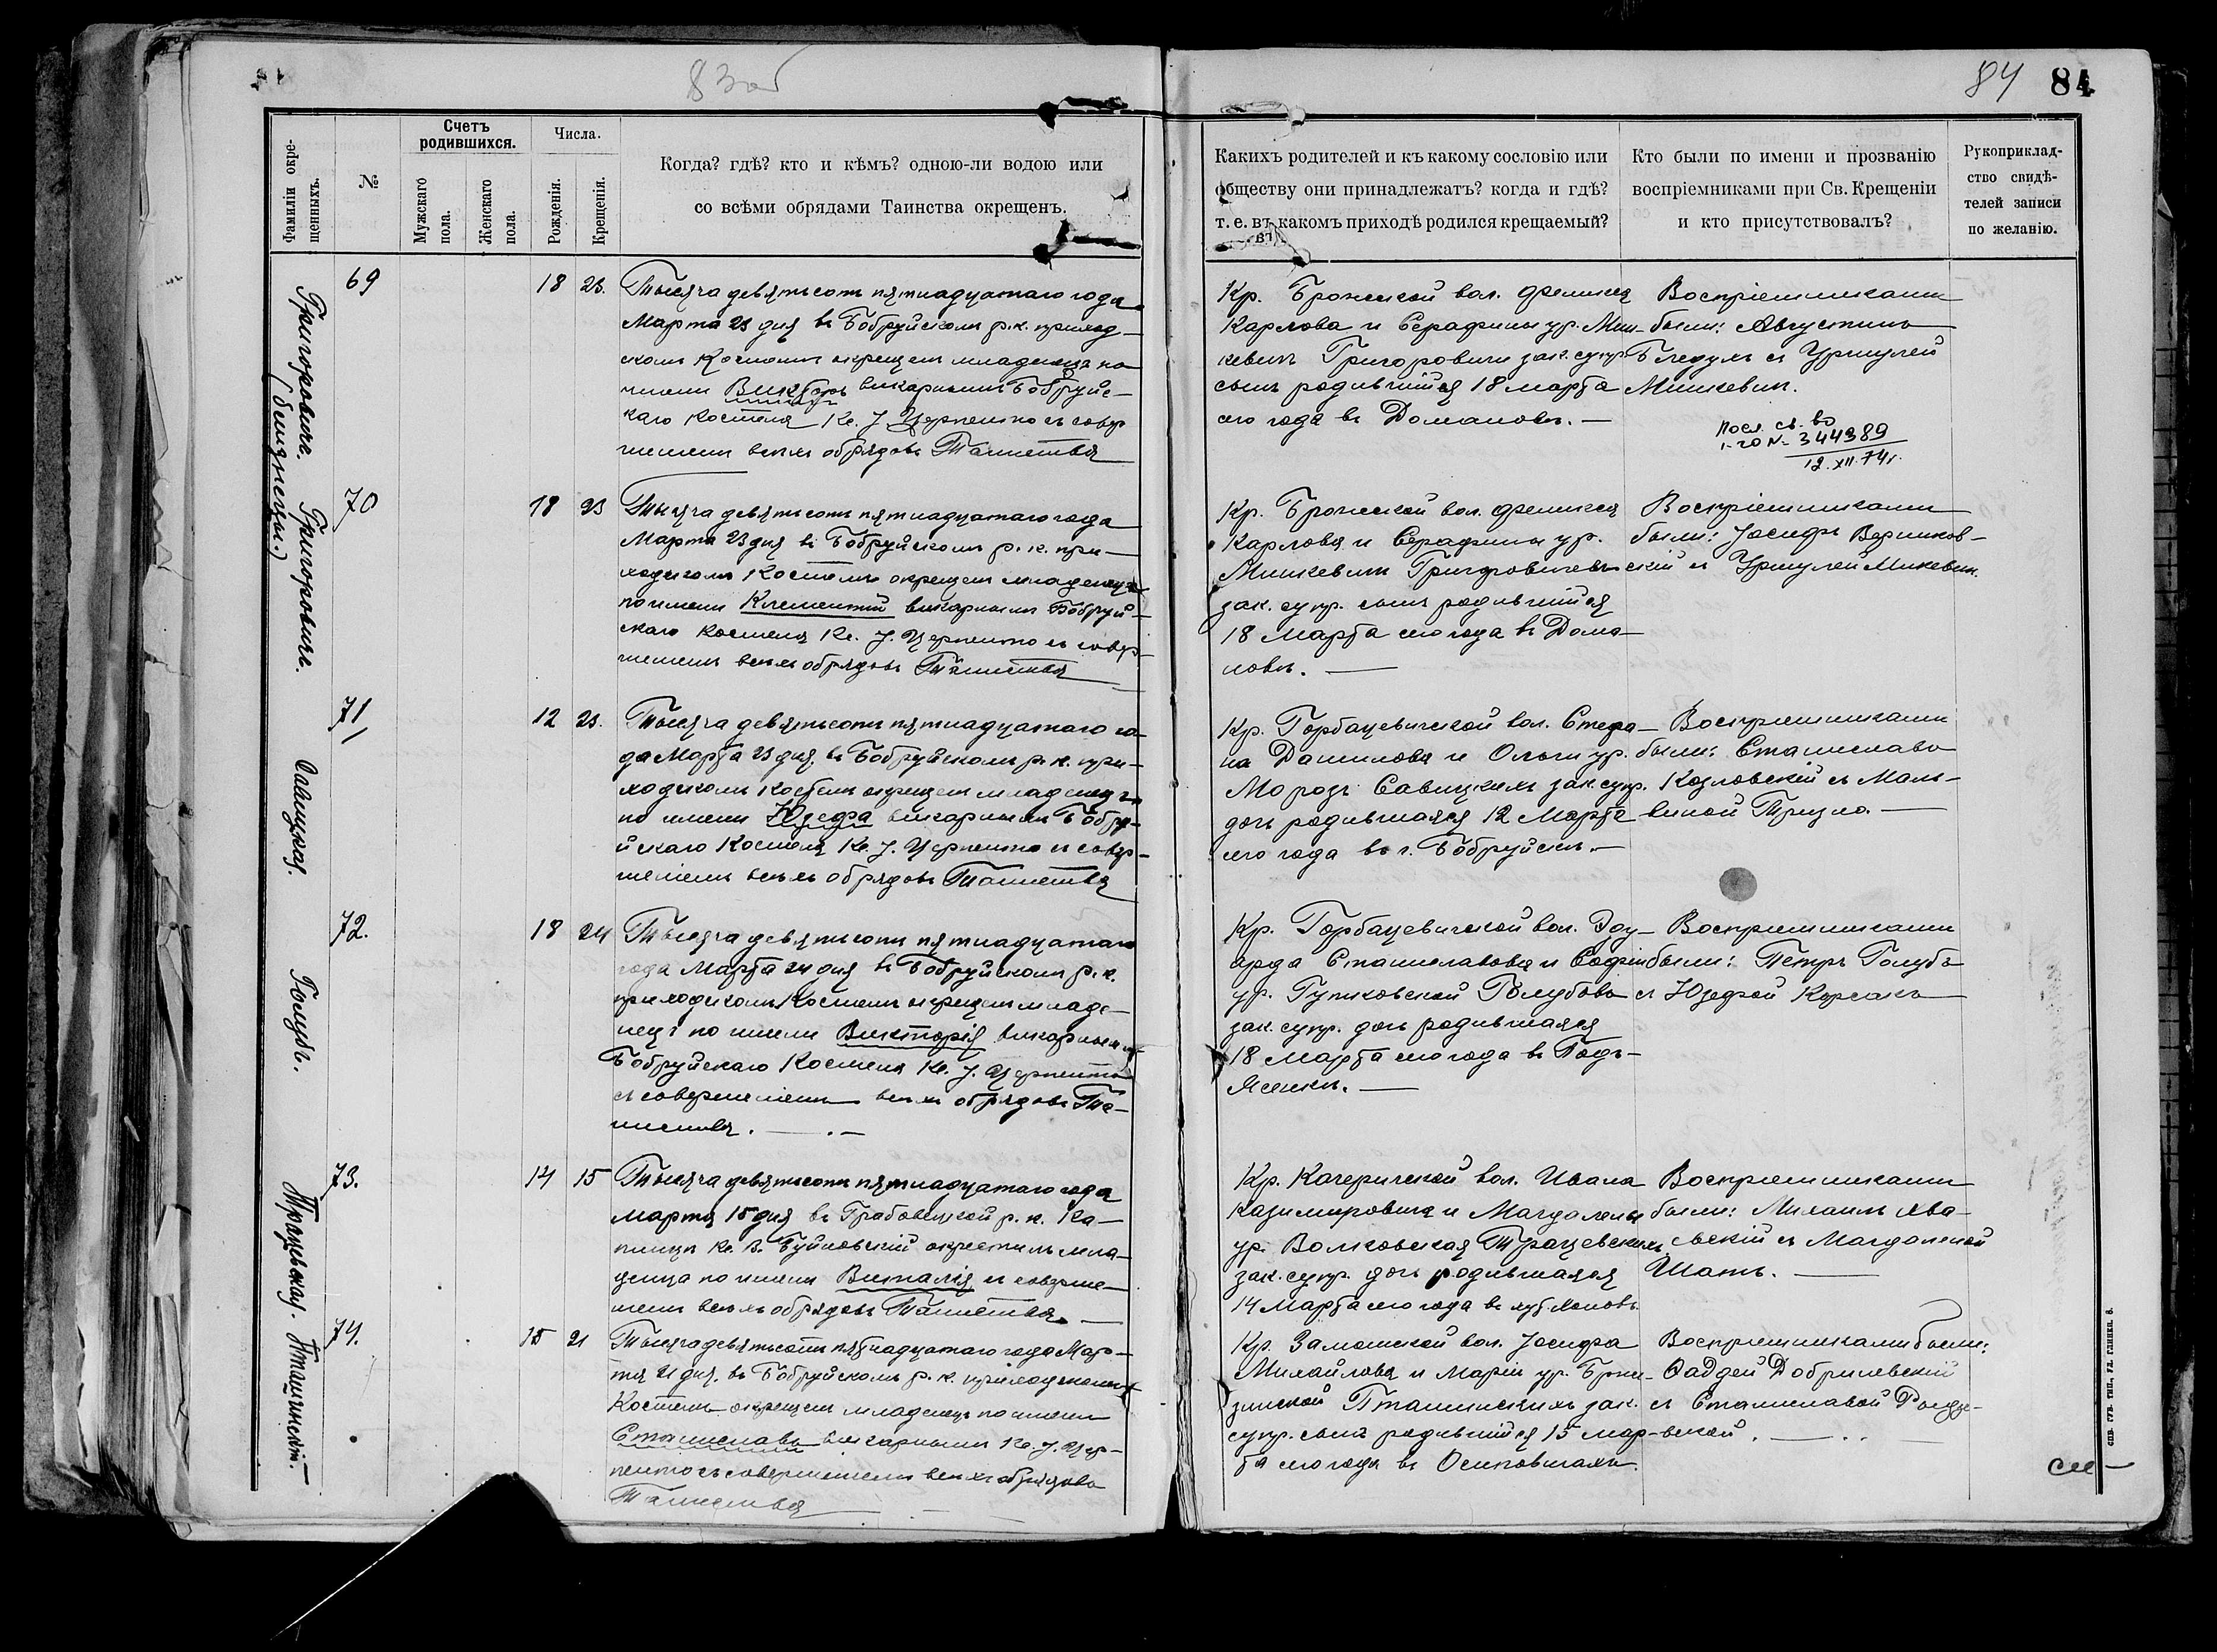 83 об
84 84
Фамиліи окре-
щенныхъ.
№
Счетъ
родившихся.
Мужскаго
пола.
Женскаго
пола.
Числа.
Рожденія.
Крещенія.
Когда? гдѣ? кто и кѣмъ? одною-ли водою или
со всѣми обрядами Таинства окрещенъ.
Какихъ родителей и къ какому сословію или
обществу они принадлежатъ? когда и гдѣ?
т. е. въ какомъ приходѣ родился крещаемый?
Кто были по имени и прозванію
воспріемниками при Св. Крещеніи
и кто присутствовалъ?
Рукоприклад-
ство свидѣ-
телей записи
по желанію.
Григоровичъ.
(близнецы.)
69
18 23.
Тысяча девятьсотъ пятнадцатаго года
Марта 23 дня въ Бобруйскомъ р. к. приход-
скомъ Костелѣ окрещенъ младенецъ по
имени Викторъ викарнымъ Бобруйс-
каго Костела Кс. І. Церпенто съ совер
шеніемъ всѣхъ обрядовъ Таинства
Кр. Брожской вол. Феликса
Карлова и Серафины ур. Миш-
кевичъ Григоровичи зак. супр.
сынъ родившійся 18 марта
сего года въ Домановѣ.
Воспріемниками
были: Августинъ
съ Уршулей
Мишкевичъ.
Посл. св. во
№ 344389
12. XII. 74 г.
Григоровичъ.
70
18 23
Тысяча девятьсотъ пятнадцатаго года
Марта 23 дня въ Бобруйскомъ р. к. при-
ходскомъ Костелѣ окрещенъ младенецъ
по имени Клементій викарнымъ Бобруй-
скаго Костела Кс. І. Церпенто съ совер-
шеніемъ всѣхъ обрядовъ Таинства
Кр. Брожской вол. Феликса
Карлова и Серафины ур.
Мишкевичъ Григоровичевъ
зак. супр. сынъ родившійся
18 Марта сего года въ Дома-
новѣ.
Воспріемниками
были: Іосифъ Верников-
скій съ Уршулей Микевич.
Савицкая.
71
12 23.
Тысяча девятьсотъ пятнадцатаго го-
да Марта 23 дня, въ Бобруйскомъ р. к. при-
ходскомъ Костелѣ окрещенъ младенецъ
по имени Юзефа викарнымъ Бобру-
йскаго Костела Кс. І. Церпенто съ совер-
шеніемъ всѣхъ обрядовъ Таинства
Кр. Горбацевичской вол. Стефа-
на Данилова и Ольги ур.
Морозъ Савицкихъ зак. супр.
дочь родившаяся 12 Марта
сего года въ г. Бобруйскѣ.
Воспріемниками
были: Станиславъ
Козловскій съ Маль-
виной
Голубъ.
72.
18 24
Тысяча девятьсотъ пятнадцатаго
года Марта 24 дня въ Бобруйскомъ р. к.
приходскомъ Костелѣ окрещенъ младе-
нецъ по имени Викторія викарнымъ
Бобруйскаго Костела Кс. І. Церпенто
съ совершеніемъ всѣхъ обрядовъ Та-
инства.
Кр. Горбацевичской вол. Эду-
арда Станиславова и Софіи
ур. Гутковской Голубовъ
зак. супр. дочь родившаяся
18 Марта сего года въ Подъ-
Ясенкѣ.
Воспріемниками
были: Петръ Голубъ
съ Юзефой Корсакъ
Трацевская.
73.
14 15
Тысяча девятьсотъ пятнадцатаго года
марта 15 дня въ Грабовецкой р. к. Ка-
плицѣ Кс. В. Буйновскій окрестилъ мла-
денца по имени Виталія съ соверше-
ніемъ всѣхъ обрядовъ Таинства.
Кр. Качеричской вол. Ивана
Казимировича и Магдалены
ур. Волковская Трацевскихъ
зак. супр. дочь родившаяся
14 Марта сего года въ
Воспріемниками
были: Михаилъ
съ Магдаленой
Шатъ.
Пташинскій.
74.
15 21
Тысяча девятьсотъ пятнадцатаго года Мар-
та 21 дня, въ Бобруйскомъ р. к. приходскомъ
Костелѣ окрещенъ младенецъ по имени
Станиславъ викарнымъ Кс. І. Цер-
пенто съ совершеніемъ всѣхъ обрядовъ
Таинства
Кр. Замошской вол. Іосифа
Михайлова и Маріи ур. Брже-
зинской Пташинскихъ зак.
супр. сынъ родившійся 15 мар-
та сего года въ Осиповичахъ.
Воспріемниками были:
Фаддей Добрилевскій
съ Станиславой
СПБ. ГУБ. ТИП., УЛ. ГЛИНКИ. 6.